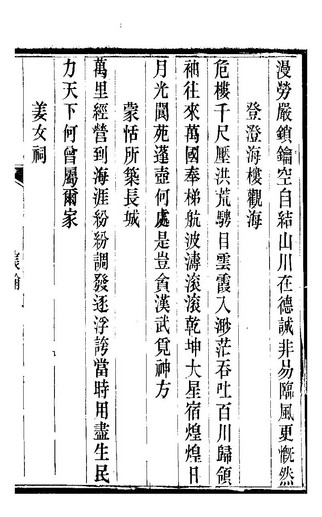 漫勞嚴鎖鑰空自結山川在德誠非易臨風更慨然
登澄海樓觀海
危樓千尺壓洪荒騁目雲霞入渺茫吞吐百川歸領
袖往來萬國奉梯航波濤滾滾乾坤大星宿煌煌日
月光閬苑蓬壺何處是豈貪漢武覓神方
蒙恬所築長城
萬里經營到海涯紛紛調發逐浮誇當時用盡生民
力天下何曾屬爾家
姜女祠